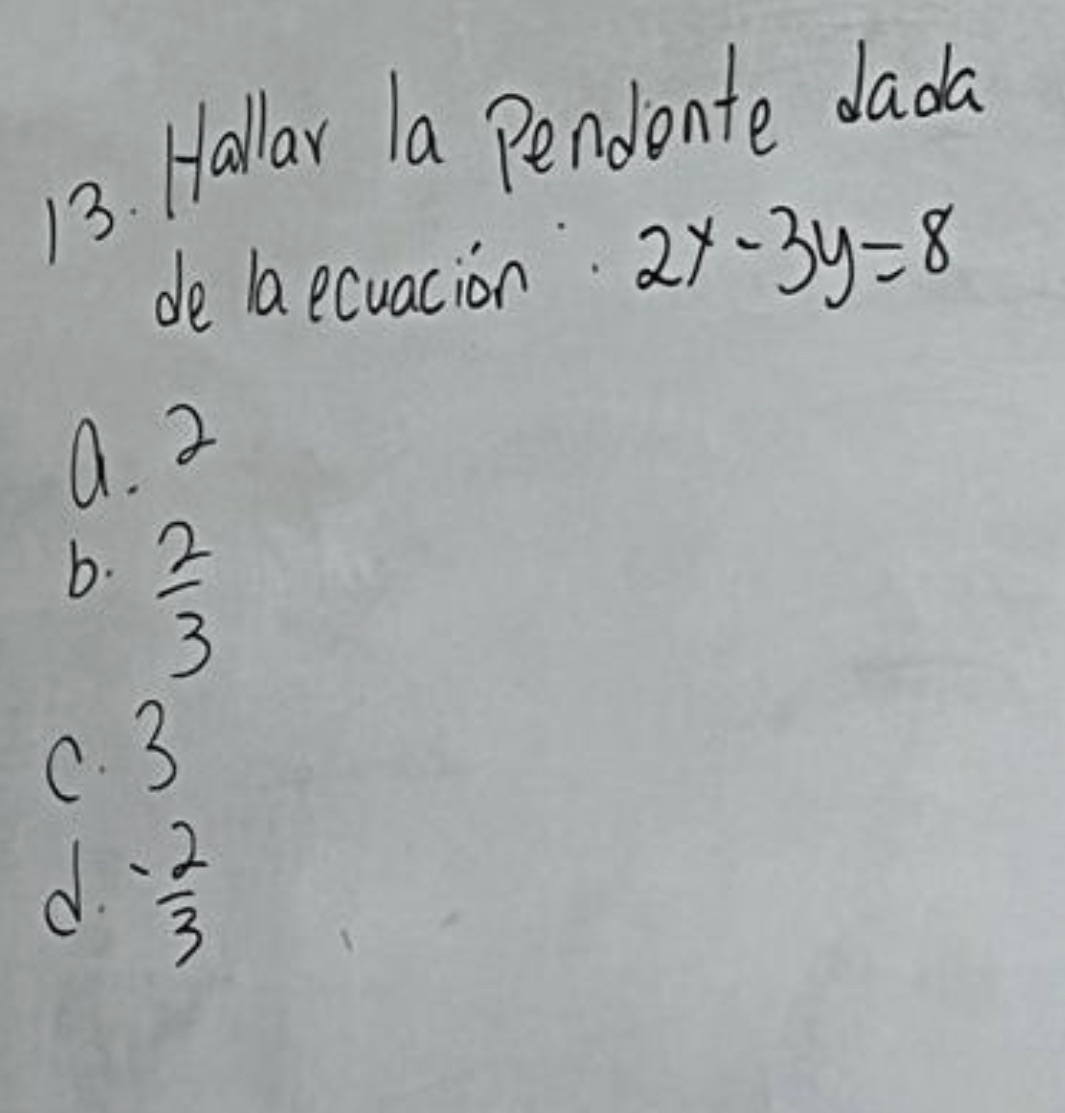 13. Hallar la Pendiente dada
de la ecuación : 2x - 3y = 8
a. 2
b. 2/3
c. 3
d. -2/3